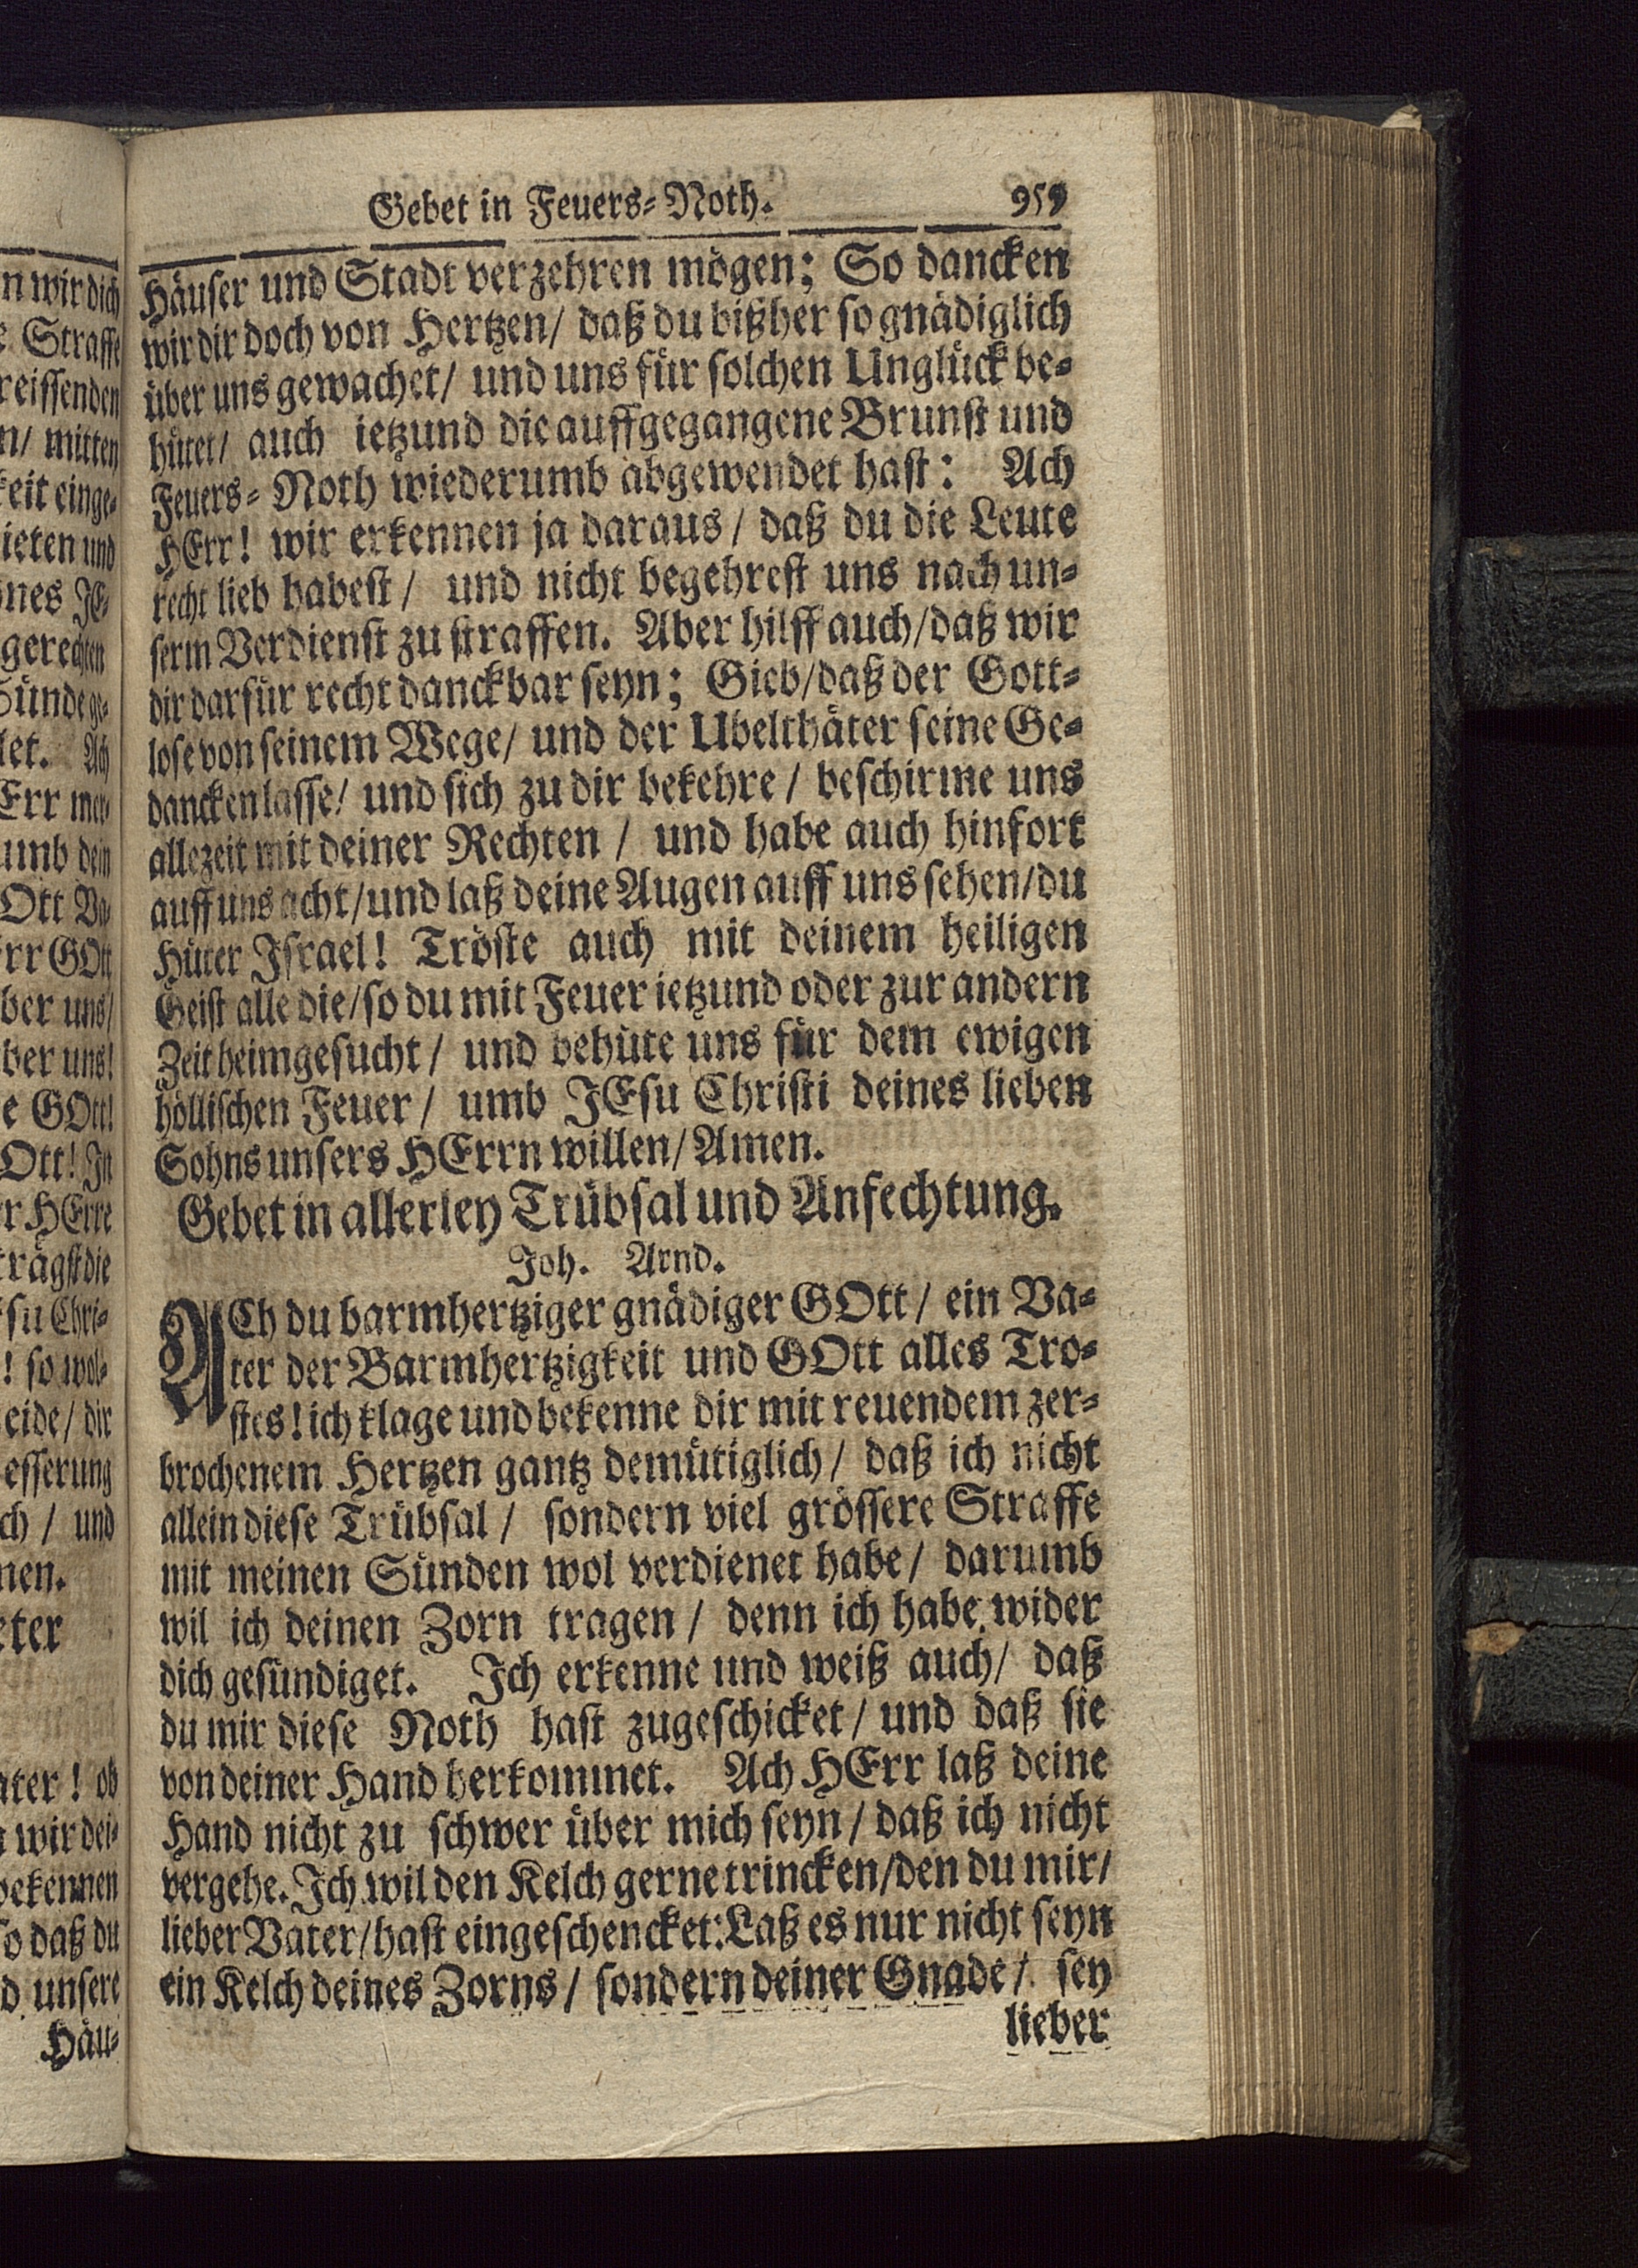 Gebet in Feuers-Noth. 959
Häuser und Stadt verzehren mögen; So dancken
wir dir doch von Hertzen/ daß du bißher so gnädiglich
über uns gewachet/ und uns für solchen Unglück be-
hütet/ auch ietzund die auffgegangene Brunst und
Feuers-Noth wiederumb abgewendet hast: Ach
HErr! wir erkennen ja daraus/ daß du die Leute
recht lieb habest/ und nicht begehrest uns nach un-
serm Verdienst zu straffen. Aber hilff auch/ daß wir
dir darfür recht danckbar seyn; Gieb/ daß der Gott-
lose von seinem Wege/ und der Ubelthäter seine Ge-
dancken lasse/ und sich zu dir bekehre/ beschirme uns
allezeit mit deiner Rechten/ und habe auch hinfort
auff uns acht/ und laß deine Augen auff uns sehen/ du
Hüter Israel! Tröste auch mit deinem heiligen
Geist alle die/ so du mit Feuer ietzund oder zur andern
Zeit heimgesucht/ und behüte uns für dem ewigen
höllischen Feuer/ umb JEsu Christi deines lieben
Sohns unsers HErrn willen/ Amen.
Gebet in allerley Trübsal und Anfechtung.
Joh. Arnd.
ACh du barmhertziger gnädiger GOtt/ ein Va-
ter der Barmhertzigkeit und GOtt alles Tro-
stes! ich klage und bekenne dir mit reuendem zer-
brochenem Hertzen gantz demütiglich/ daß ich nicht
allein diese Trübsal/ sondern viel grössere Straffe
mit meinen Sünden wol verdienet habe/ darumb
wil ich deinen Zorn tragen/ denn ich habe wider
dich gesündiget. Ich erkenne und weiß auch/ daß
du mir diese Noth hast zugeschicket/ und daß sie
von deiner Hand herkommet. Ach HErr laß deine
Hand nicht zu schwer über mich seyn/ daß ich nicht
vergehe. Ich wil den Kelch gerne trincken/ den du mir/
lieber Vater/ hast eingeschencket: Laß es nur nicht seyn
ein Kelch deines Zorns/ sondern deiner Gnade/ sey
lieber